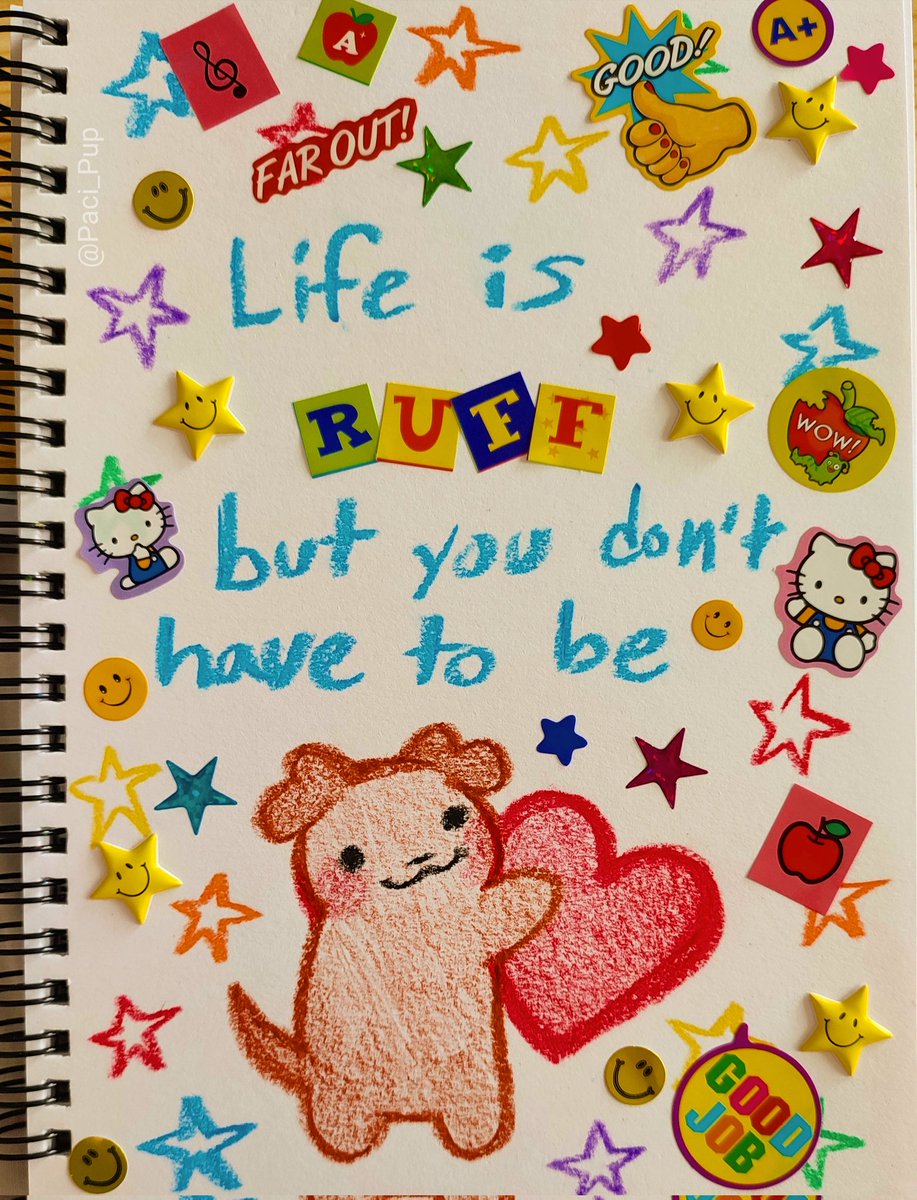 A+
GOOD!
A+
FAR OUT!
@Paci_Pup
Life is
RUFF
WOW!
but you don't
have to be
GOOD
JOB